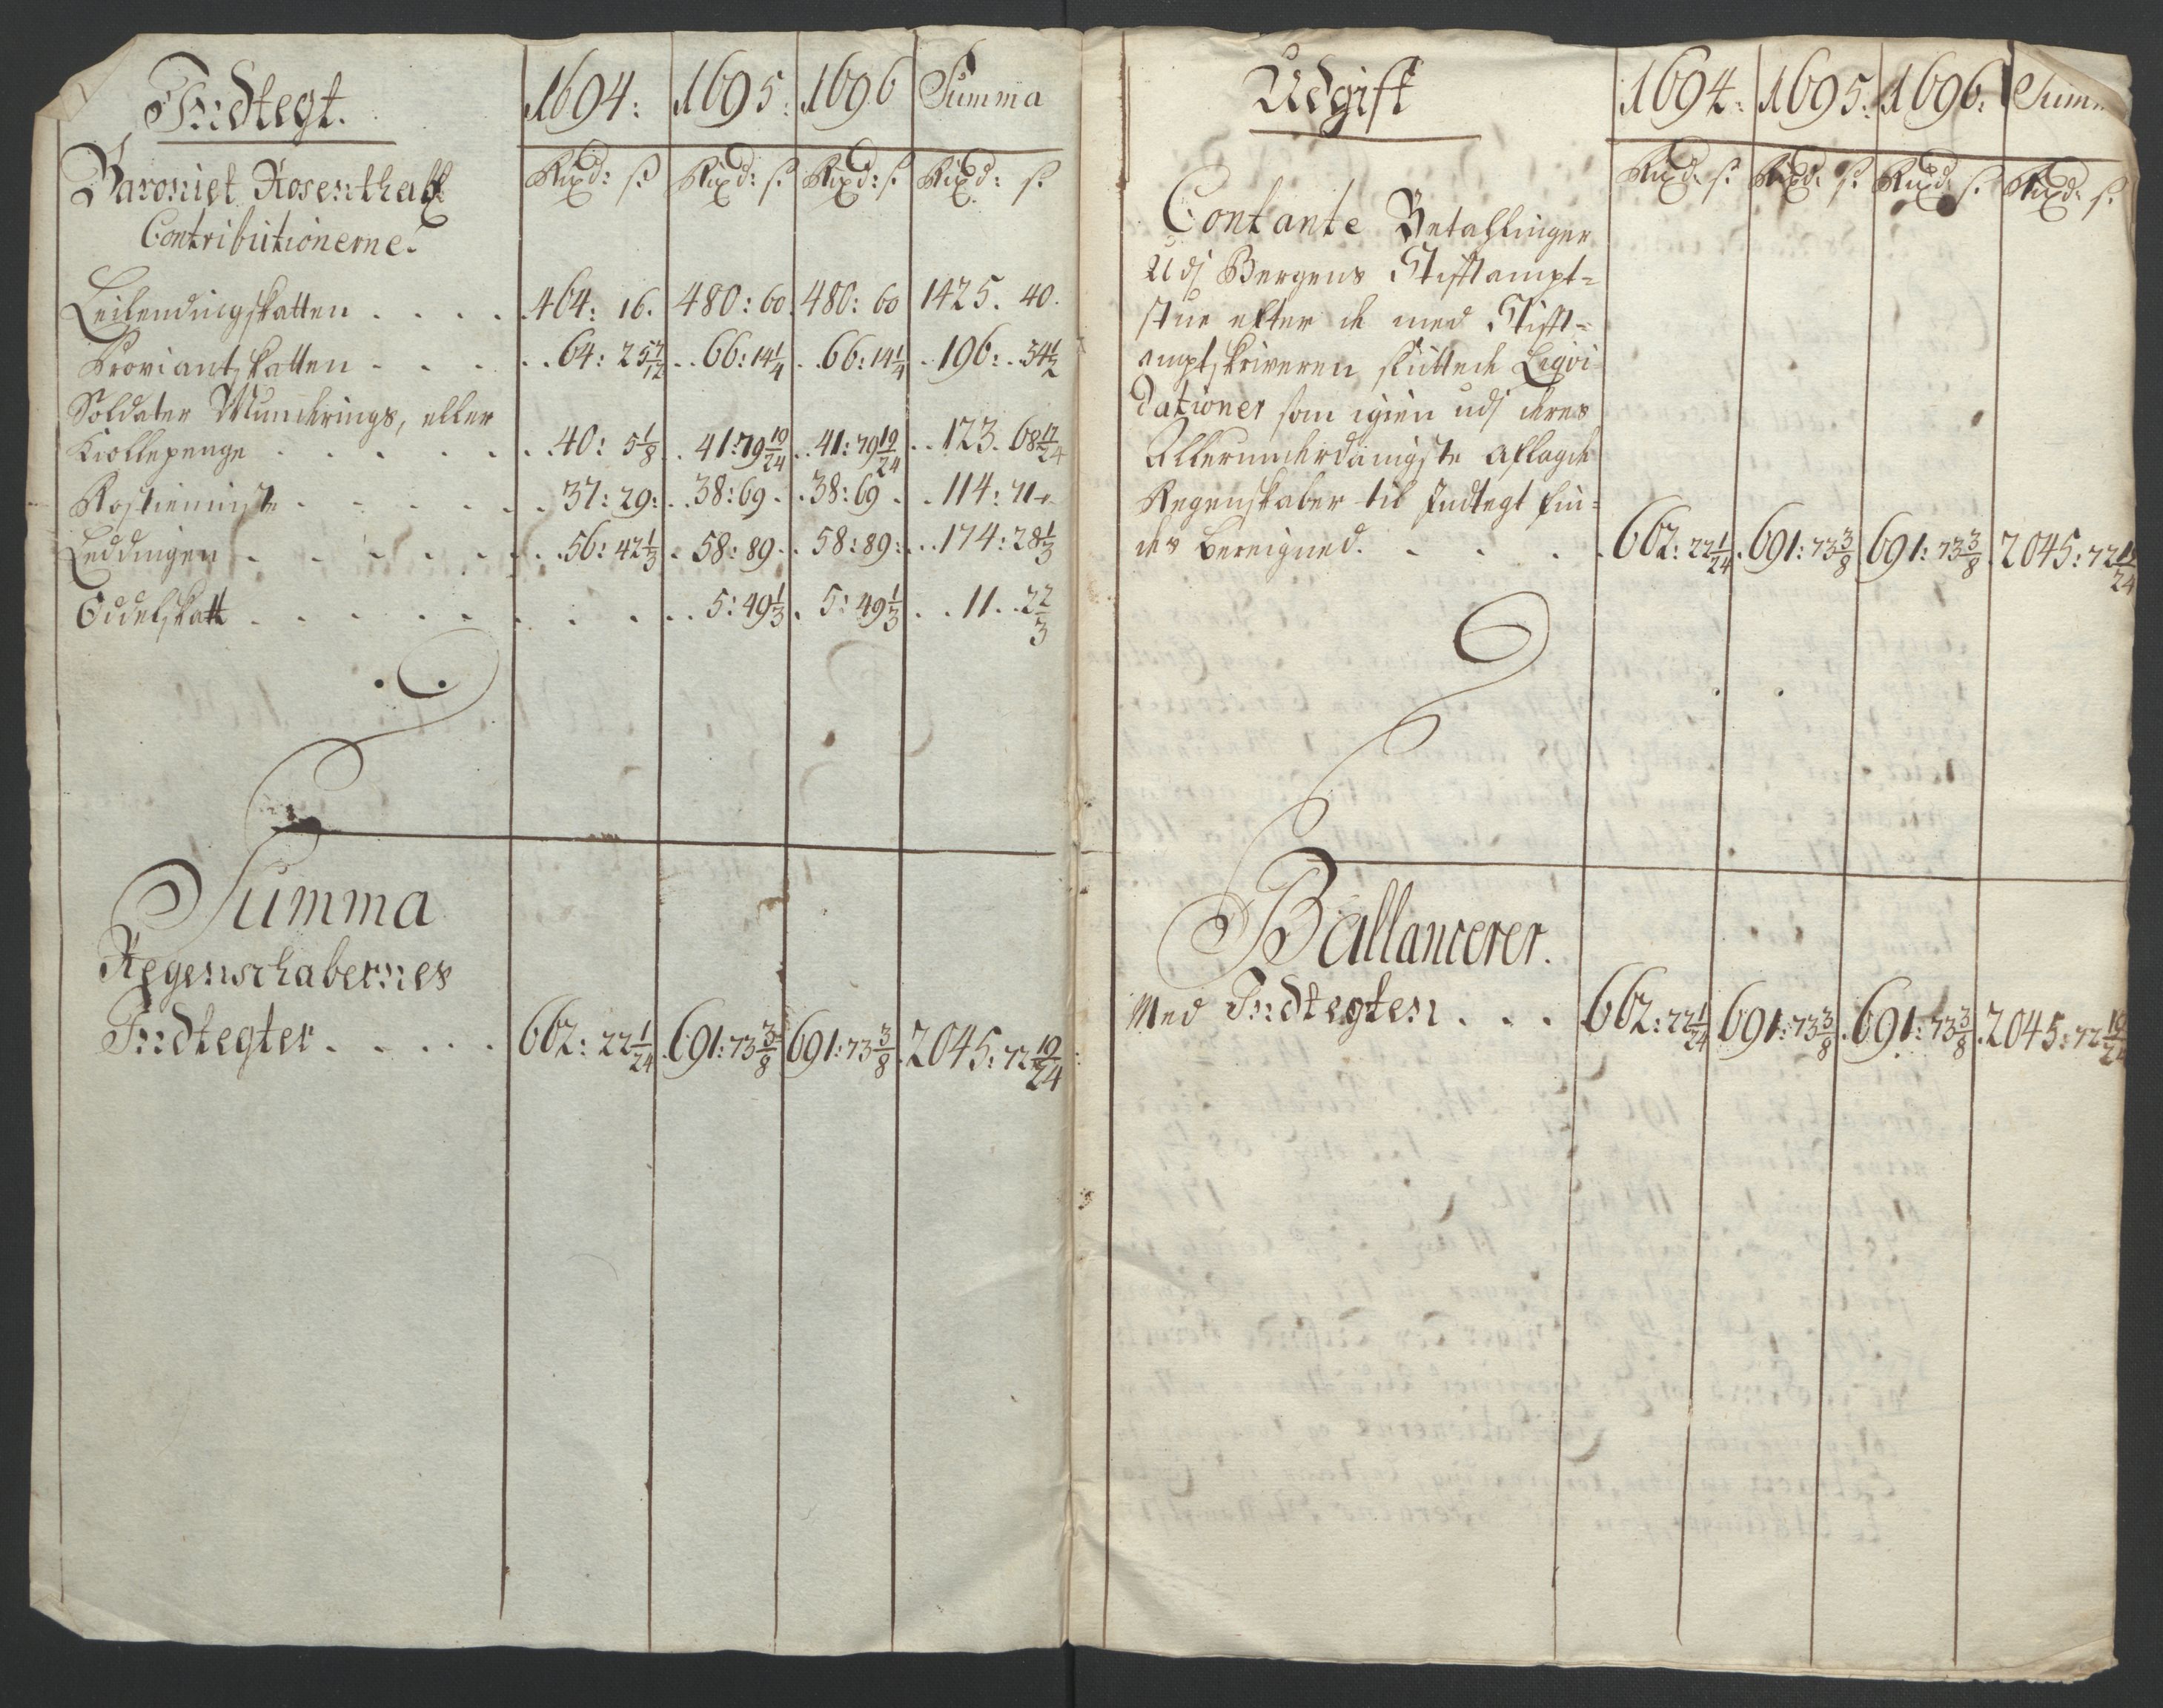 Indtegt. 1694: 1695: 1696 Summa
Rixd: s. Rixd: s. Rixd: s. Rixd: s.
Baroniet Rosenthalls
Contributionerne.
Leilendingskatten . . . . 464: 16. 480: 60. 480: 60 1425. 40.
Proviantskatten . . . . 64: 25 5/12 . 66: 14 1/4 . 66: 14 1/4 . 196: 54 1/2
Soldater Munderings, eller
Kiollepenge . . . . . . 40: 5 1/8 . 41: 79 19/24 . 41: 79 19/24 . 123. 68 17/24
Rostieniste . . . . . . 37: 29: . 38: 69 . 38: 69 . 114: 71
Leddingen . . . . . . 56: 42 1/3 . 58: 89 . 58: 89: . 174: 28 1/3
Oddelskatt . . . . . . . . . 5: 49 1/3 . 5: 49 1/3 . 11. 2 2/3
Summa
Regenschabernes
Indtegter . . . . . 662: 22 1/24 . 691: 73 3/8 691: 73 3/8 2045: 72 19/24
Udgift 1694: 1695: 1696: Summ
Rixd: s. Rixd: s. Rixd: s. Rixd: s.
Contante Betahlinger
Udj Bergens Stifftampt-
stue efter de med Stifft-
amptskriveren sluttede Liqvi
dationer som igien udj deres
Allerunderdanigste aflagde
Regenskaber til Indtegt fin-
des bereigned . . . . 662: 22 1/24 . 691: 73 3/8 691: 73 3/8 . 2045: 72 19/24
Ballancerer.
Med Indtegten . . . 662: 22 1/24 691: 73 3/8 . 691: 73 3/8 . 2045: 72 19/24